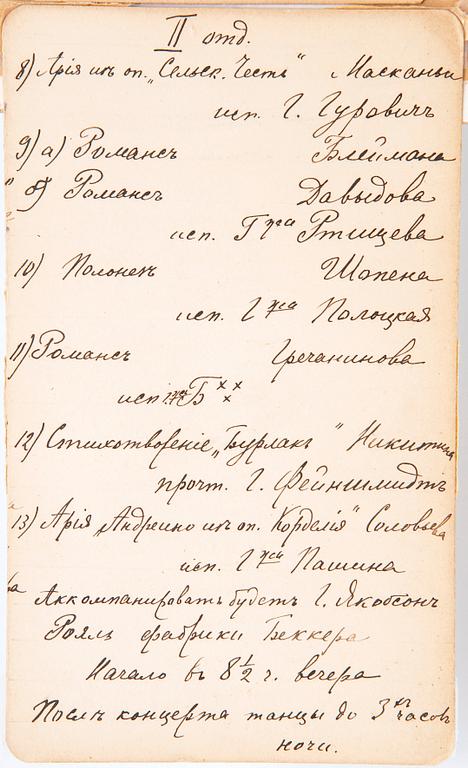 II отд.
8) Арія изъ оп. „Сельск. Честь“ Масканьи
исп. Г. Гуровичъ
9) а) Романсъ Блеймана
" б) Романсъ Давыдова
исп. Г жа Ртищева
10) Полонезъ Шопена
исп. Г жа Полоцкая
11) Романсъ Гречанинова
исп. Б ×××
12) Стихотвореніе „Бурлакъ“ Никитина
прочт. Г. Фейншмидтъ
13) Арія Андреино изъ оп. „Корделія“ Соловьева
исп. Г жа Пашина
Аккомпанировать будетъ Г. Якобсонъ
Рояль фабрики Беккера
Начало въ 8 1/2 ч. вечера
Послѣ концерта танцы до 3 хъ часовъ
ночи.